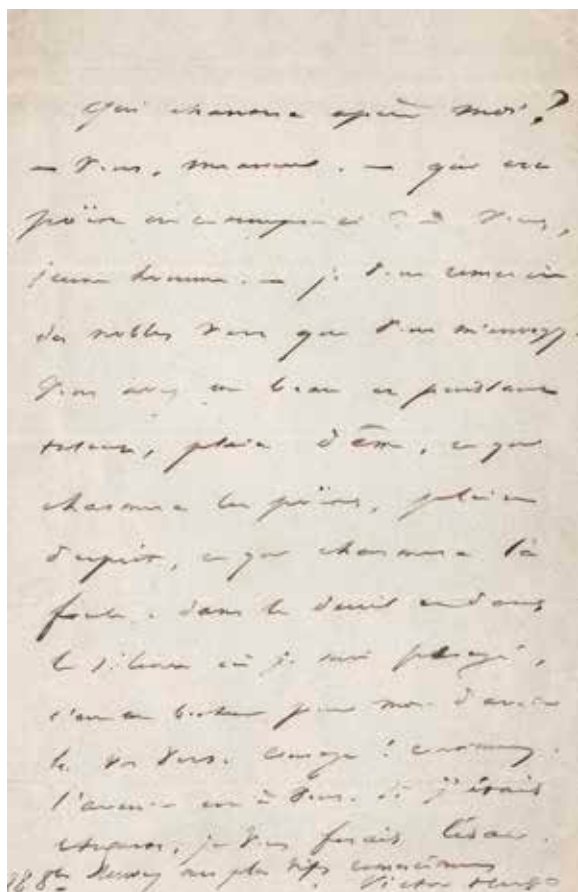 Qui après moi ?
— Vous, — qui est
poète en ce ? — Vous,
jeune homme. — je vous remercie
des nobles vers que vous m'envoyez.
Vous avez un beau et puissant
talent, plein d'âme, ce qui
charmera les poëtes, plein
d'esprit, ce qui charmera la
foule. dans le deuil et dans
le silence où je suis plongé,
c'est un bonheur pour moi
vos vers. courage !
l'avenir est à vous. Si j'étais
je vous ferais César.
8bre Recevez mes plus vifs remerciments
Victor Hugo